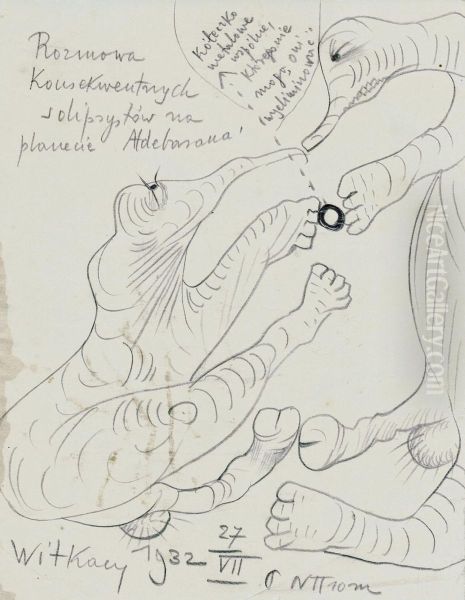 Rozmowa
Konsekwentnych
solipsystów na
planecie Aldebarana
Kółeczko
metalowe
wspólne,
którego nie
mogą oni
wyeliminować
NiceArtGallery.com
Witkacy 1932 27
VII
NП10m